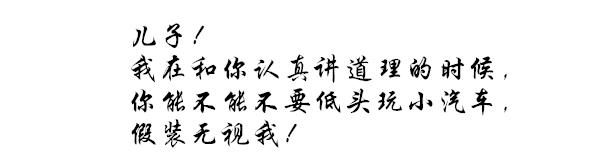 儿子!
我在和你认真讲道理的时候,
你能不能不要低头玩小汽车,
假装无视我!